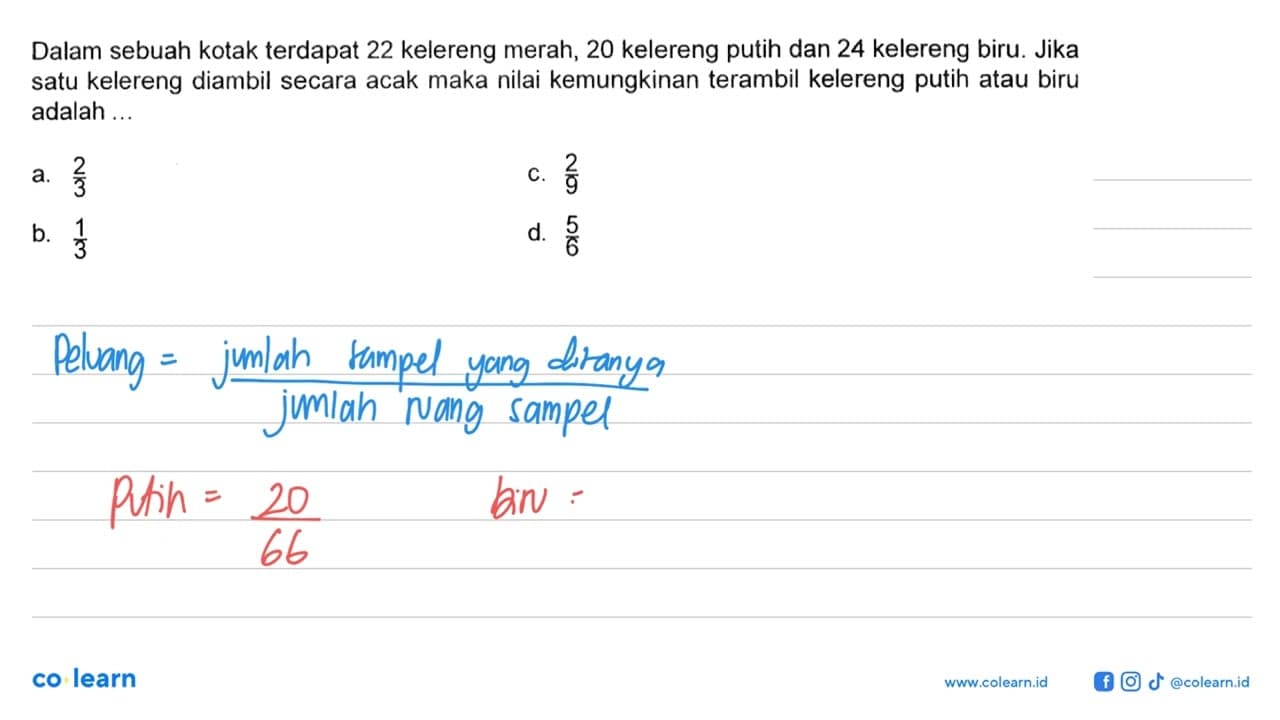 Dalam sebuah kotak terdapat 22 kelereng merah, 20 kelereng putih dan 24 kelereng biru. Jika
satu kelereng diambil secara acak maka nilai kemungkinan terambil kelereng putih atau biru
adalah ...
a. 2/3
c. 2/9
b. 1/3
d. 5/6
Peluang = jumlah sampel yang ditanya
jumlah ruang sampel
Putih = 20/66
biru =
co learn
www.colearn.id
@colearn.id